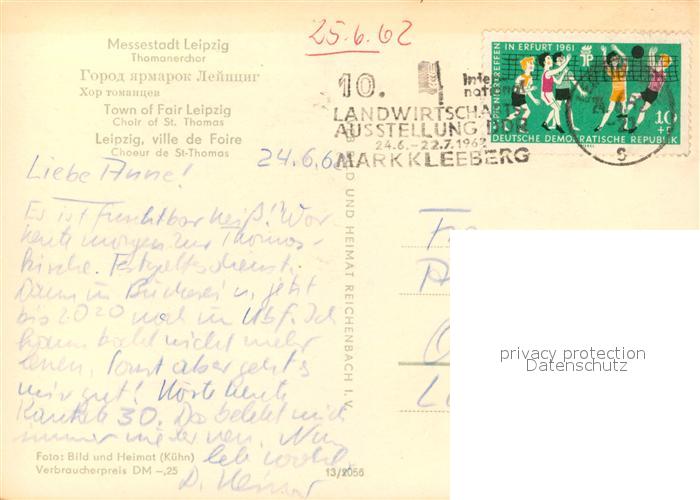 25.6.62
Messestadt Leipzig
Thomanerchor
Город ярмарок Лейпциг
Хор томанцев
Town of Fair Leipzig
Choir of St. Thomas
Leipzig, ville de Foire
Choeur de St-Thomas
10. Inter
natio
LANDWIRTSCHA
AUSSTELLUNG DDR
24.6.-22.7.1962
MARKKLEEBERG
PIONIERTREFFEN IN ERFURT 1961
10
+5
DEUTSCHE DEMOKRATISCHE REPUBLIK
s
24.6.62
Liebe Anne!
Es ist furchtbar heiß! War
heute morgen zur Thomas-
kirche. Festgottesdienst.
Dann in Bücherei u. jetzt
bis 2020 noch im Hbf. Ich
kann bald nicht mehr
lesen, sonst aber geht's
mir gut! Hörte heute
Kantate 30. Das belebt mich
immer wieder neu. Nun
leb wohl
D.
BILD UND HEIMAT REICHENBACH I. V.
Foto: Bild und Heimat (Kühn)
Verbraucherpreis DM -,25
13/2056
privacy protection
Datenschutz